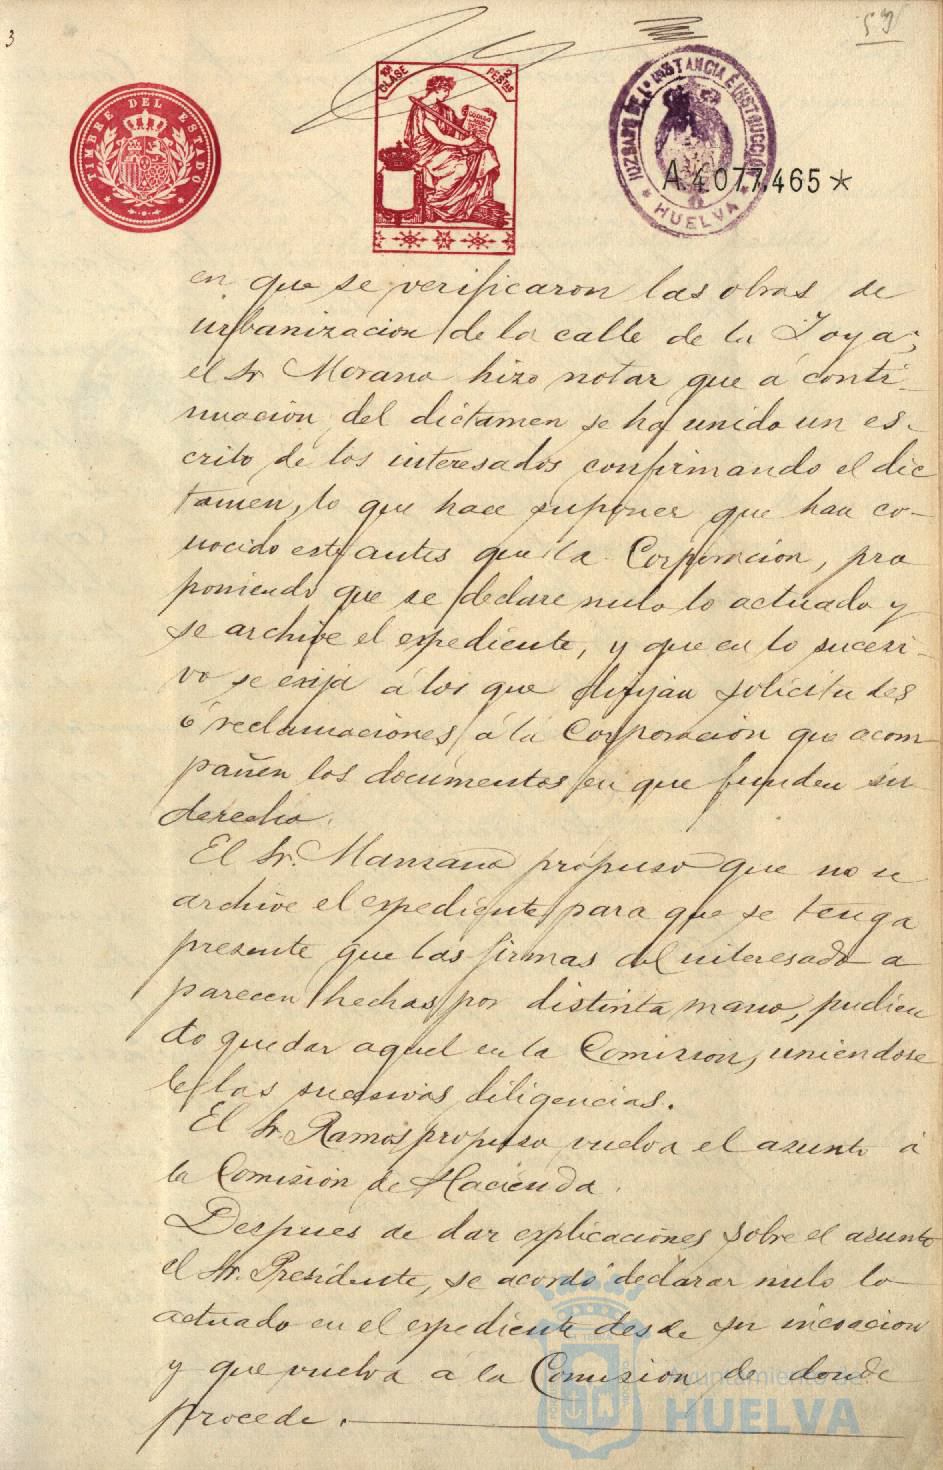 3
59
TIMBRE DEL ESTADO
10ª CLASE
2 PESETAS
JUZGADO DE 1ª INSTANCIA É INSTRUCCIÓN
* HUELVA *
A.4.077.465 *
en que se verificaron las obras de
urbanización de la calle de la Joya;
el Sr Morano hizo notar que á conti-
nuación del dictamen se ha unido un es-
crito de los interesados confirmando el dic
tamen, lo que hace suponer que han co-
nocido este antes que la Corporación, pro
poniendo que se declare nulo lo actuado y
se archive el expediente, y que en lo sucesi-
vo se exija á los que dirijan solicitudes
ó reclamaciones á la Corporación que acom
pañen los documentos en que funden su
derecho.
El Sr. Manzano propuso que no se
archive el expediente para que se tenga
presente que las firmas del interesado a
parecen hechas por distinta mano, pudien
do quedar aquel en la Comision, uniendose
le las sucesivas diligencias.
El Sr. Ramos propuso vuelva el asunto á
la Comisión de Hacienda.
Despues de dar explicaciones sobre el asunto
el Sr. Presidente, se acordó declarar nulo lo
actuado en el expediente desde su incoacion
y que vuelva á la Comision de donde
procede.
Ayuntamiento de
HUELVA